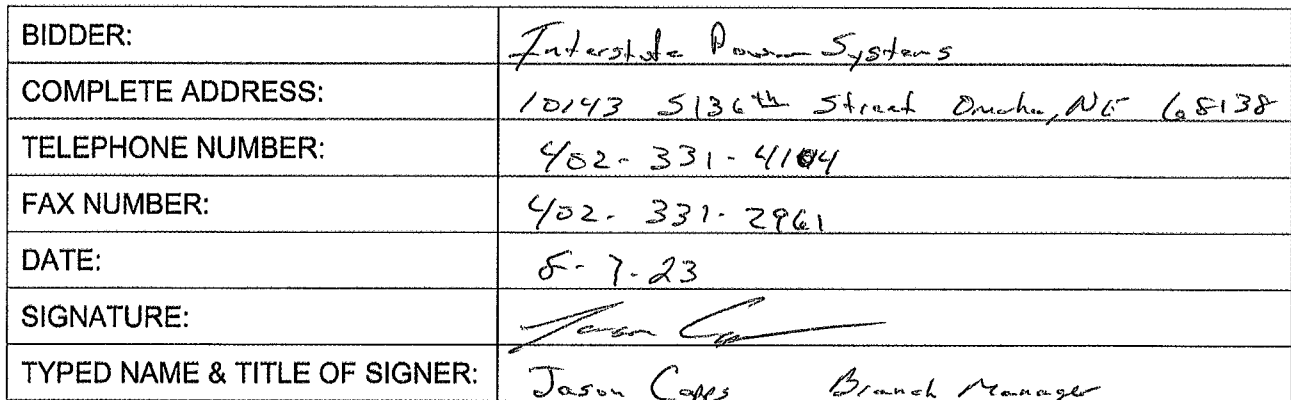 BIDDER: Interstate Power Systems
COMPLETE ADDRESS: 10143 S 136th Street Omaha, NE 68138
TELEPHONE NUMBER: 402-331-4104
FAX NUMBER: 402-331-2961
DATE: 8-7-23
SIGNATURE: Jason Capps
TYPED NAME & TITLE OF SIGNER: Jason Capps Branch Manager